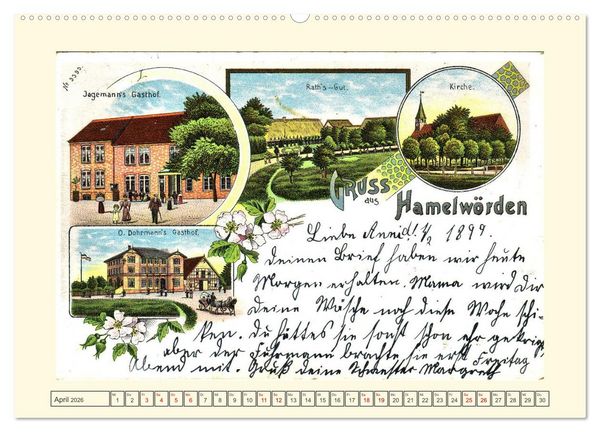 No 3393.
Jagemann's Gasthof.
Rath's-Gut.
Kirche.
Gruss
aus
Hamelwörden
O. Dohrmann's Gasthof.
Liebe Anni d. 1/2 1899.
deinen Brief haben wir heute
Morgen erhalten. Mama wird dir
deine Wäsche noch diese Woche schi-
cken. du hättes sie sonst schon ehr gekrigt
aber der Fuhrmann brachte sie erst Freitag
Abend mit. Gruß deine Schwester Margreth
April 2026
Mi Do Fr Sa So Mo Di Mi Do Fr Sa So Mo Di Mi Do Fr Sa So Mo Di Mi Do Fr Sa So Mo Di Mi Do
1 2 3 4 5 6 7 8 9 10 11 12 13 14 15 16 17 18 19 20 21 22 23 24 25 26 27 28 29 30